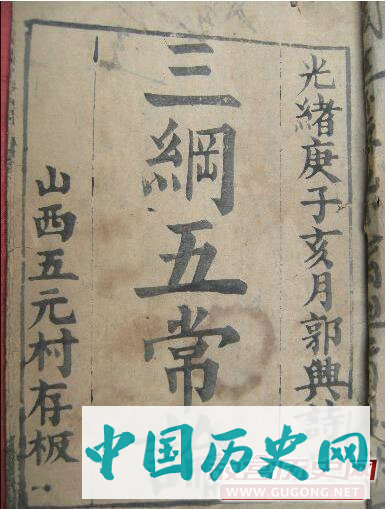 光緒庚子亥月郭興詩
三綱五常
山西五元村存板
中国历史网
WWW.GUGONG.NET